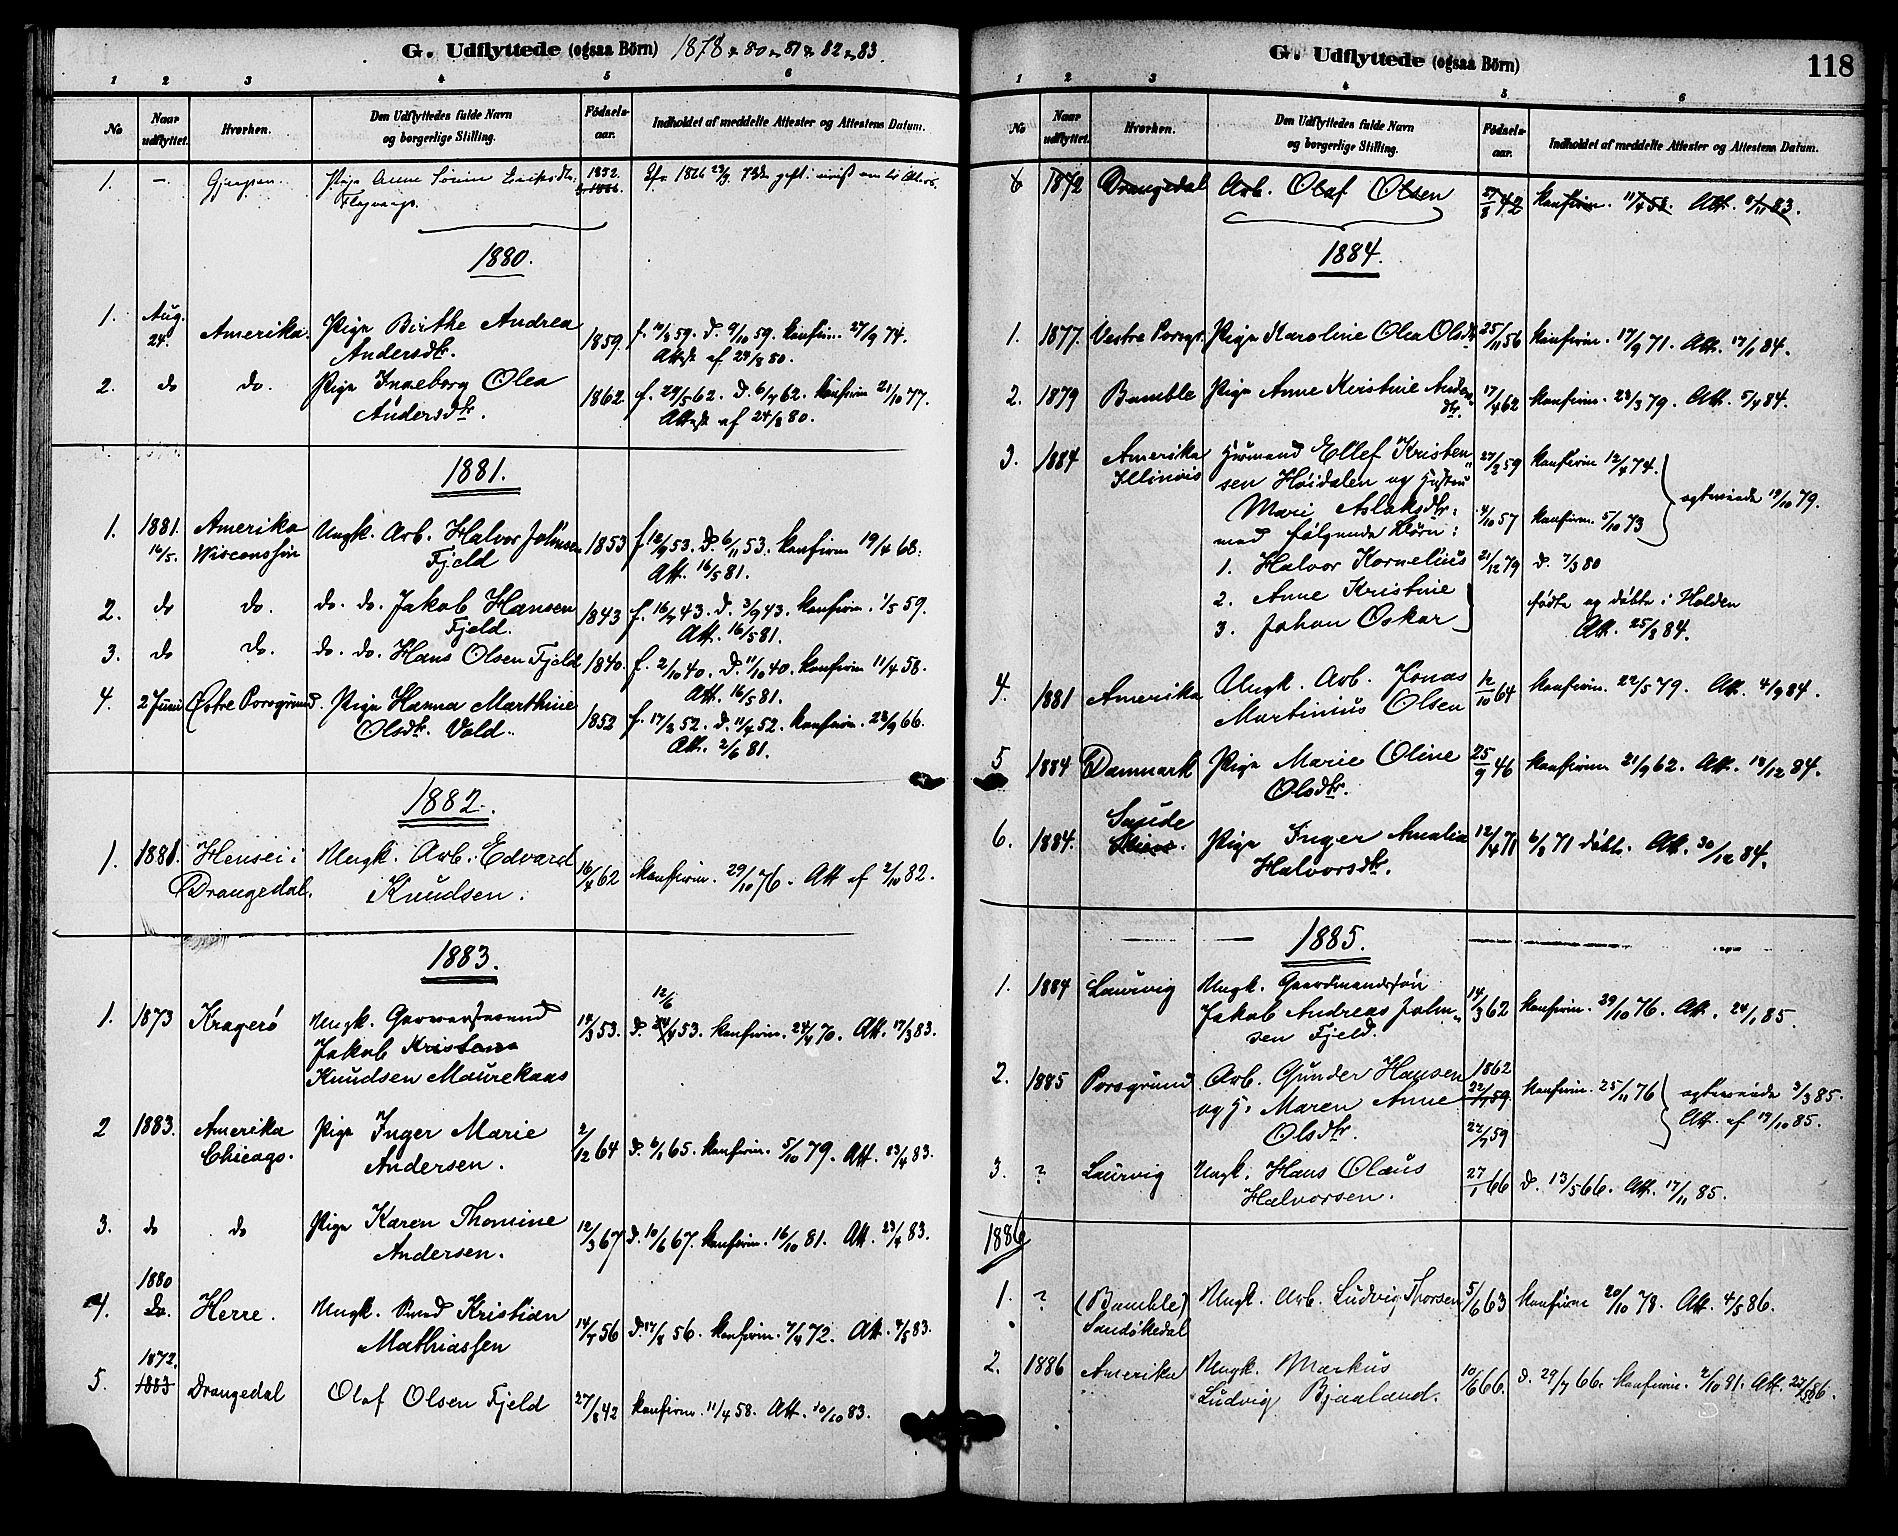 G. Udflyttede (ogsaa Börn) 1878 80 81 82 83.
1 2 3 4 5 6
No Naar udflyttet. Hvorhen. Den Udflyttedes fulde Navn og borgerlige Stilling. Födsels-aar. Indholdet af meddelte Attester og Attestens Datum.
1. — Gjerpen. Pige Anne 1852.
1880.
1. Aug. 24. Amerika. Pige Birthe Andrea 1859. f. 59. d. 9/10 59. konfirm. 27/9 74.
Andersdtr. Attest af 24/8 80.
2. do do. Pige Ingeborg Olea 1862 f. 29/5 62. d. 6/7 62. konfirm 21/10 77.
Andersdtr. Attest af 24/8 80.
1881.
1. 1881. 16/5. Amerika Ungk. Arb. Halvor Johnsen 1853 f. 12/9 53. d. 6/11 53. konfirm 19/4 68.
Wisconsin Fjeld Att. 16/5 81.
2. do do. do. do. Jakob Hansen 1843 f. 16/7 43. d. 3/9 43. konfirm. 1/5 59.
Fjeld. Att. 16/5 81.
3. do do. do. do. Hans Olsen Fjeld 1840. f. 2/10 40. d. 11/10 40. konfirm 11/4 58.
Att. 16/5 81.
4. 2 Juni Östre Porsgrund. Pige Hanna Marthine 1852 f. 17/2 52. d. 11/4 52. konfirm. 23/9 66.
Olsdtr. Vold. Att. 2/6 81.
1882.
1. 1881. Hensei i Ungk. Arb. Edvard 16/4 62 konfirm. 29/10 76. Att af 2/10 82.
Drangedal. Knudsen.
1883.
12/6
1. 1873 Kragerö Ungk. 12/3 53. d. 53. konfirm. 24/4 70. Att. 17/3 83.
Jakob Kristen
Knudsen Maurekaas
2 1883. Amerika Pige Inger Marie 2/12 64 d. 6/1 65. konfirm. 5/10 79. Att. 23/4 83.
Chicago. Andersen.
3. do do Pige Karen Thomine 12/3 67 d. 10/6 67. konfirm. 16/10 81. Att. 23/4 83.
Andersen.
1880
4. do. Herre. Ungk. Kristian 14/7 56 d. 17/8 56. konfirm. 7/4 72. Att. 7/5 83.
Mathiassen
1872.
5. 1883 Drangedal Olaf Olsen Fjeld 27/8 42 konfirm. 11/4 58. Att. 10/10 83.
G. Udflyttede (ogsaa Börn) 118
1 2 3 4 5 6
No Naar udflyttet. Hvorhen. Den Udflyttedes fulde Navn og borgerlige Stilling. Födsels-aar. Indholdet af meddelte Attester og Attestens Datum.
6 1872 Drangedal Arb. Olaf Olsen 27/8 42 konfirm. 11/4 58. Att. 83.
1884.
1. 1877. Vestre Porsgr. Pige Karoline Olea Olsdtr 25/11 56 konfirm. 17/9 71. Att. 17/1 84.
2. 1879 Bamble Pige Anne Kristine Anders- 17/4 62 konfirm. 23/3 79. Att. 5/4 84.
dtr.
3. 1884 Amerika Husmand Ellef Kristen- 27/2 59 konfirm 12/4 74.
Illinois sen Höidalen og Hustru ægteviede 19/10 79.
Mari Aslaksdtr. 4/10 57 konfirm. 5/10 73
med fölgende Börn:
1. Halvor Kornelius 21/12 79 d. 7/3 80
2. Anne Kristine födte og döbte i Holden
3. Johan Oskar Att. 25/3 84.
4. 1881 Amerika Ungk. Arb. Jonas 12/10 64 konfirm. 22/5 79. Att. 4/9 84.
Martinius Olsen
5 1884 Danmark Pige Marie Oline 25/9 46 konfirm. 21/9 62. Att. 13/12 84.
Olsdtr.
Saude
6. 1884. Skien. Pige Inger Amalia 12/4 71 6/8 71 döbt. Att. 30/12 84.
Halvorsdtr.
1885.
1. 1884 Laurvig Ungk. Gaardmandssön
Jakob Andreas John- 14/3 62 konfirm. 29/10 76. Att. 24/1 85.
sen Fjeld.
2. 1885 Porsgrund Arb. Gunder Hansen 1862 konfirm. 25/11 76 ægteviede 3/3 85.
og H. Maren Anne 22/7 59 Att. af 19/10 85.
Olsdtr. 22/7 59
3. ? Laurvig Ungk. Hans Olaus 27/1 66 d. 13/5 66. Att. 17/11 85.
Halvorsen.
1886
1. ? (Bamble) Ungk. Arb. Ludvig Thorsen 5/6 63 konfirm 20/10 78. Att. 4/5 86.
Sandökedal
2. 1886 Amerika Ungk. Markus 10/6 66. d. 29/7 66. konfirm. 2/10 81. Att. 86.
Ludvig Bjaaland.